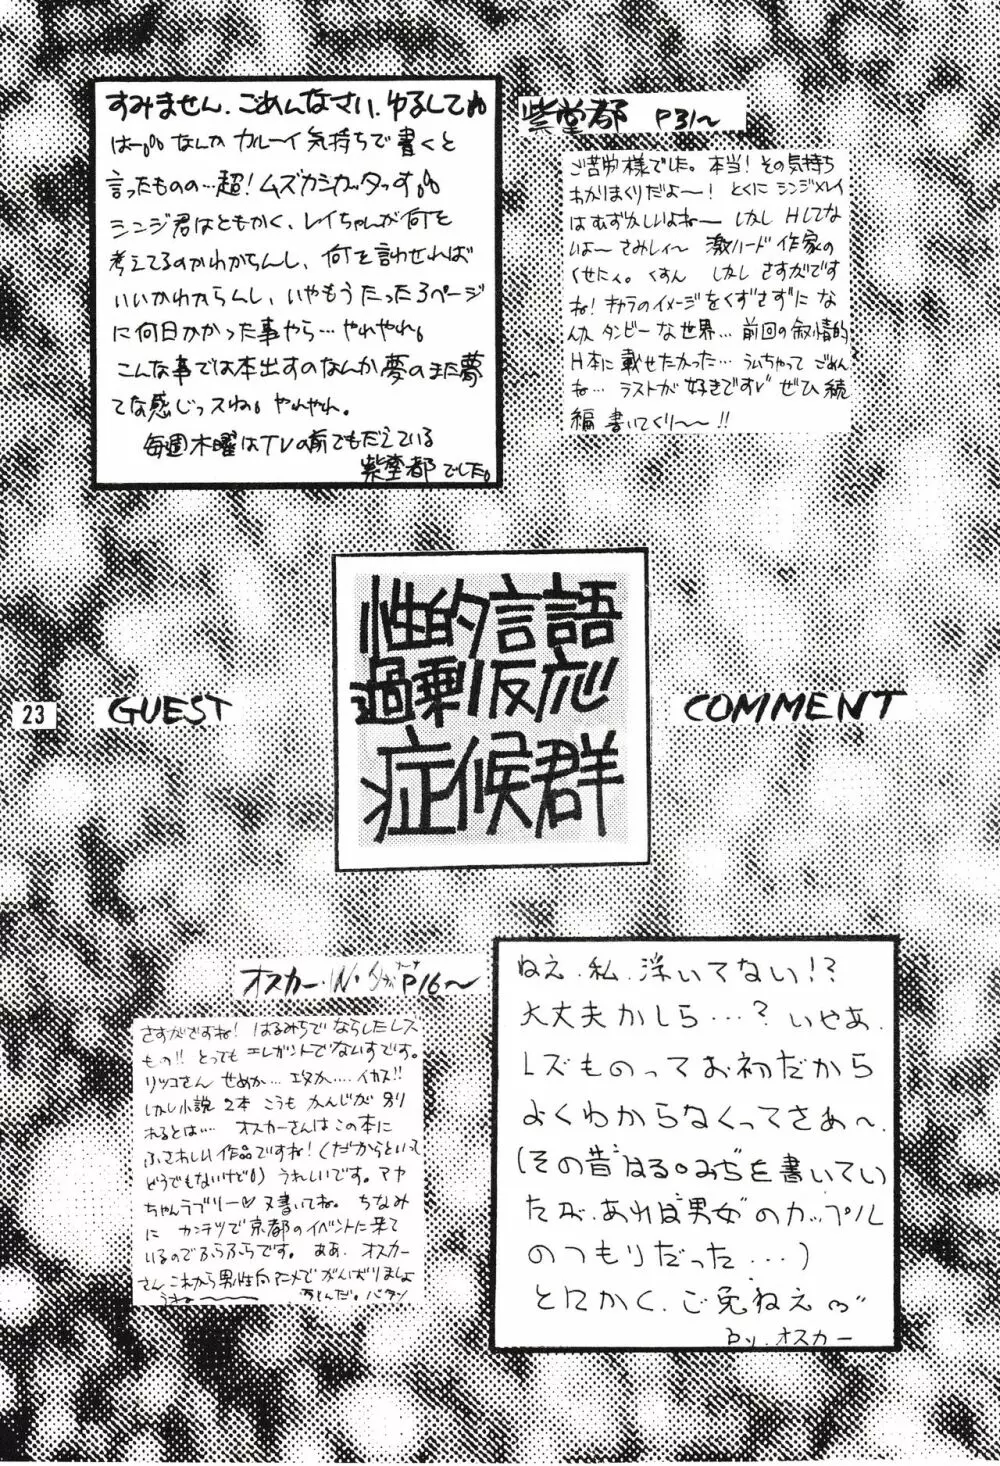 すみません.ごめんなさい.ゆるして
はー。なんか カルーイ 気持ちで書くと
言ったものの…超!ムズカシカッタっす。
シンジ君はともかく、レイちゃんが何を
考えてるのかわからんし、何を言わせれば
いいかわからんし、いやもうたった3ページ
に何日かかった事やら…やれやれ。
こんな事では本出すのなんか夢のまた夢
てな感じっスね。やれやれ。
毎週木曜はTVの前でもだえている
紫堂都でした。
紫堂都 P31〜
ご苦労様でした。本当!その気持ち
わかりまくりだよ〜! とくに シンジ×レイ
はむずかしいよね〜 しかし Hしてな
いよ〜 さみしィ〜 激ハード作家の
くせに。くすん しかし さすがです
ね!キャラのイメージをくずさずに な
んか タンビーな世界… 前回の叙情的
H本に載せたかった… うぃちゃって ごめん
ね… ラストが好きです ぜひ続
編 書いてくり〜〜!!
性的言語
過剰反応
症候群
23
GUEST
COMMENT
オスカー・W・ P16〜
さすがですね! はるみちで ならしたレズ
もの!! とっても エレガントで ないすです。
リツコさん せめか… 攻か…. イカス!!
しかし小説 2本 こうも かんじが 別
れるとは… オスカーさんは この本に
ふさわしい作品ですね!(だからといって
どうでもないけど) うれしいです。マヤ
ちゃんラブリー♡ 又書いてね。ちなみ
に カンテツで京都のイベントに来て
いるのでふらふらです。ああ. オスカー
さんこれから男性向アニメで がんばりましょ
うね〜 バタン
ねえ.私.浮いてない!?
大丈夫かしら…?いやあ.
レズものってお初だから
よくわからなくってさぁ〜.
(その昔はる。みちを書いてい
たが.あれは男女のカップル
のつもりだった…)
とにかく.ご免ねえ
By.オスカー